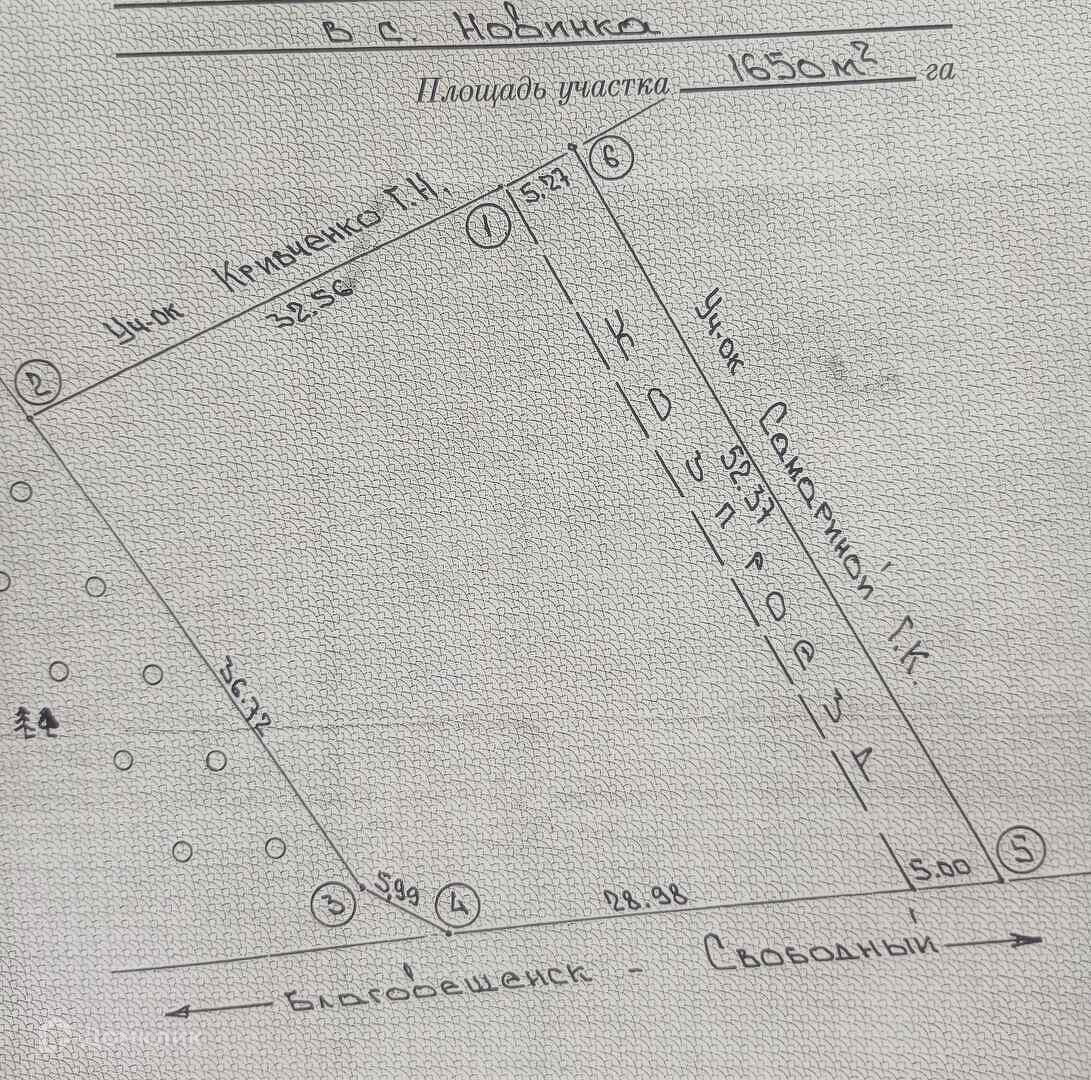 в с. Новинка
Площадь участка 1650 м² га
6
5.27
1
Уч-ок Кривченко Т.Н.
32.56
2
Уч-ок Самариной Г.К.
52.37
36.72
3
5,99
4
28.98
5.00
5
Благовещенск - Свободный
ДОМКЛИК